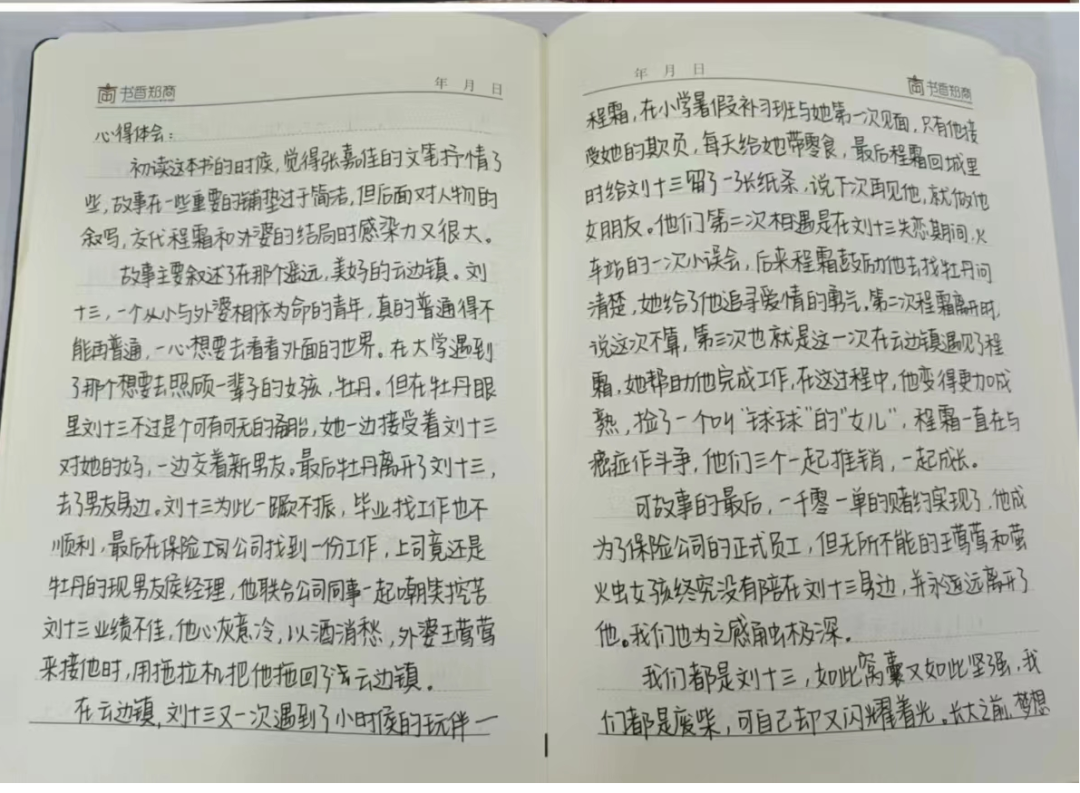 书香知商
年 月 日
心得体会：
初读这本书的时候，觉得张嘉佳的文笔抒情了
些，故事在一些重要的铺垫过于简洁，但后面对人物的
叙写，交代程霜和外婆的结局时感染力又很大。
故事主要叙述了在那个遥远，美好的云边镇。刘
十三，一个从小与外婆相依为命的青年，真的普通得不
能再普通，一心想要去看看外面的世界。在大学遇到
了那个想要去照顾一辈子的女孩，牡丹。但在牡丹眼
里刘十三不过是个可有可无的备胎，她一边接受着刘十三
对她的好，一边交着新男友。最后牡丹离开了刘十三，
去了男友身边。刘十三为此一蹶不振，毕业找工作也不
顺利，最后在保险公司找到一份工作，上司竟还是
牡丹的现男友侯经理，他联合公司同事一起嘲笑挖苦
刘十三业绩不佳，他心灰意冷，以酒消愁，外婆王莺莺
来接他时，用拖拉机把他拖回了云边镇。
在云边镇，刘十三又一次遇到了小时候的玩伴—
年 月 日
书香知商
程霜，在小学暑假补习班与她第一次见面，只有他接
受她的欺负，每天给她带零食，最后程霜回城里
时给刘十三留了一张纸条，说下次再见他，就做他
女朋友。他们第二次相遇是在刘十三失恋期间，火
车站的一次小误会，后来程霜鼓励他去找牡丹问
清楚，她给了他追寻爱情的勇气。第二次程霜离开时，
说这次不算，第三次也就是这一次在云边镇遇见了程
霜，她帮助他完成工作，在这过程中，他变得更加成
熟，捡了一个叫“球球”的“女儿”，程霜一直在与
癌症作斗争，他们三个一起推销，一起成长。
可故事的最后，一千零一单的赌约实现了，他成
为了保险公司的正式员工，但无所不能的王莺莺和萤
火虫女孩终究没有陪在刘十三身边，并永远远离开了
他。我们也为之感触极深。
我们都是刘十三，如此窝囊又如此坚强，我
们都是废柴，可自己却又闪耀着光。长大之前，梦想